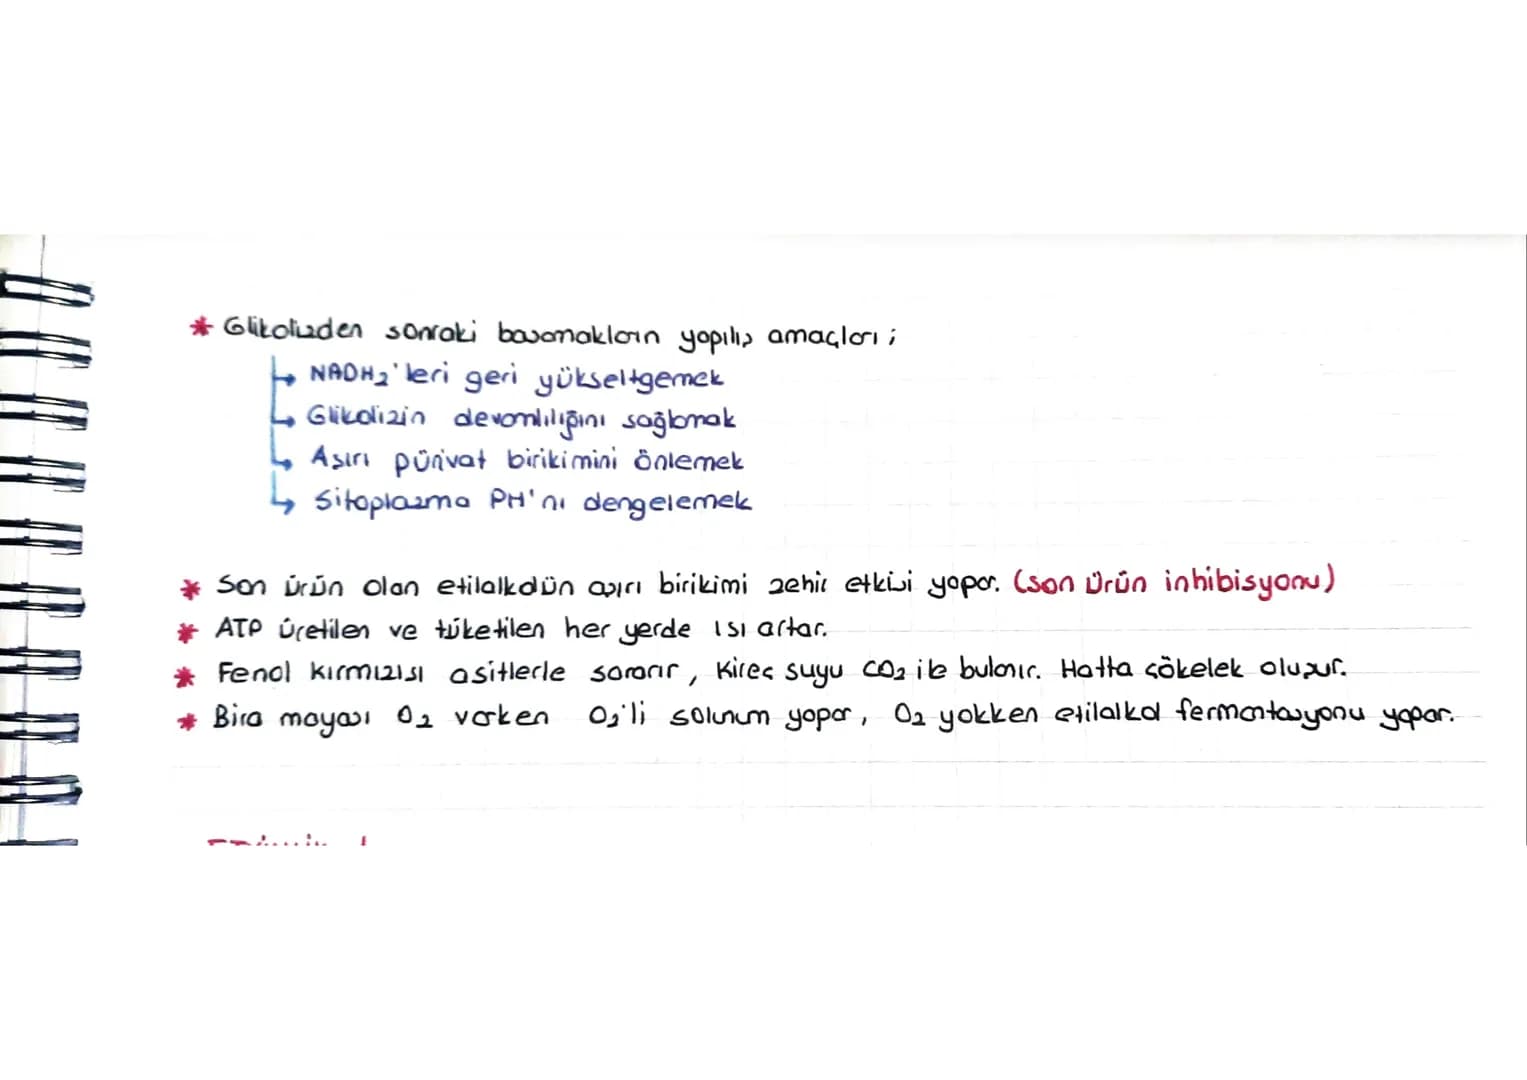 * Glikolizden sonraki basamakların yapılış amaçları ;
↳ NADH₂'leri geri yükseltgemek
↳ Glikolizin devamlılığını sağlamak
↳ Aşırı pürivat birikimini önlemek
↳ Sitoplazma PH'nı dengelemek
* Son ürün olan etilalkolün aşırı birikimi zehir etkisi yapar. (son ürün inhibisyonu)
* ATP üretilen ve tüketilen her yerde ısı artar.
* Fenol kırmızısı asitlerle sararır, Kireç suyu CO₂ ile bulanır. Hatta çökelek oluşur.
* Bira mayası O₂ varken O₂'li solunum yapar, O₂ yokken etilalkol fermantasyonu yapar.